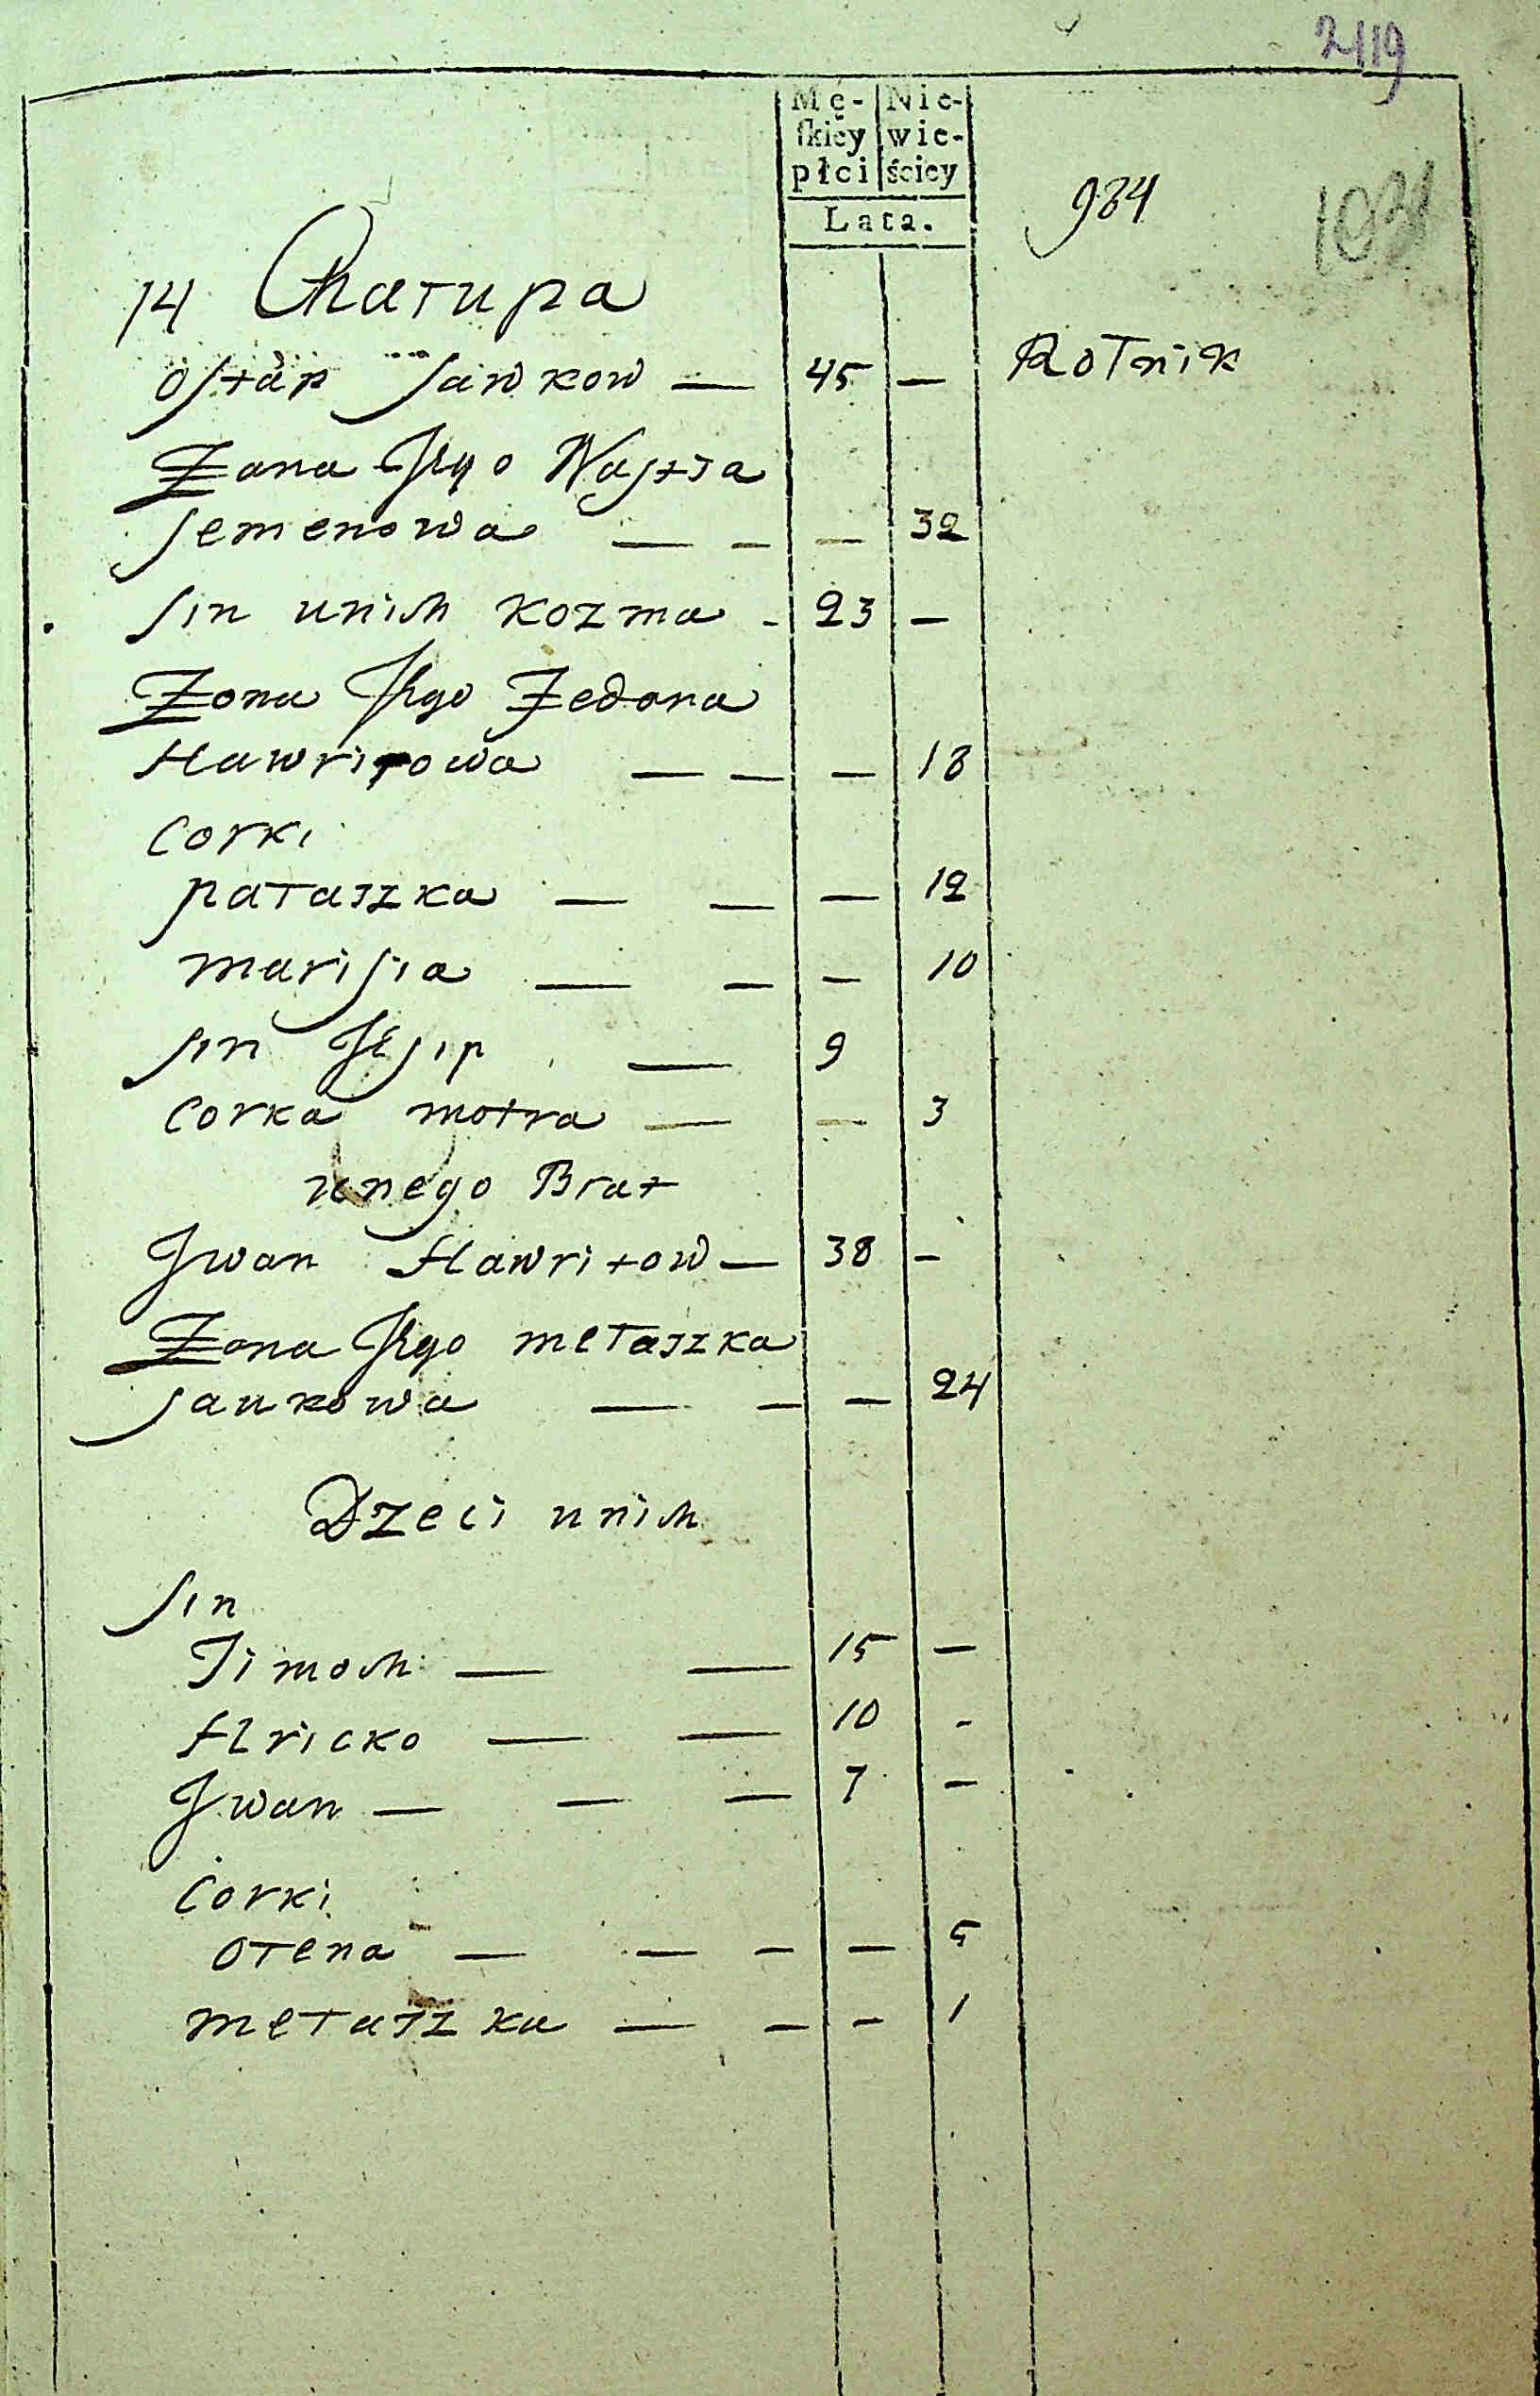 249
Mę- Nie-
skiey wie-
płci ściey
Lata.
984
14 Chałupa
ostap sawkow — 45 — Rołnik
Zona Jego Nastia
semenowa — — — 32
sin unich kozma - 23 —
Zona Jego Fedora
Hawriłowa — — — 18
Corki
pałaszka — — — 12
marisia — — — 10
sin Jesip — 9
Corka motra — — 3
unego Brat
Jwan Hawriłow — 38 —
Zona Jego mełaszka
saukowa — — — 24
Dzeci unich
sin
Timoch — — 15 —
Hricko — — 10 -
Jwan — — — 7 —
Corki
ołena — — — — 5
mełaszka — — - 1